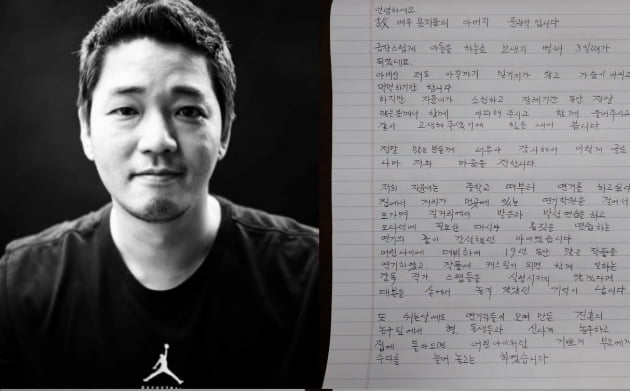 안녕하세요.
故 배우 문지윤의 아버지 문광석 입니다
갑작스럽게 아들을 하늘로 보낸지 벌써 3일째가
되었네요.
아버인 저도 아직까지 믿겨지지 않고 가슴이 아리고
먹먹하기만 합니다
하지만 지윤이가 소천하고 장례기간 동안 정말
많은분께서 함께 아파해 주시고 함께 울어주시고
같이 고생해 주셨기에 힘을 내어 봅니다
정말 많은분들께 너무나 감사해서 이렇게 글로
나마 저희 마음을 전합니다.
저희 지윤이는 중학교 때부터 연기를 하고싶어
집에서 거리가 먼곳에 있는 연기학원을 걸어서
오가며 길거리에서 발주와 발성 연습을 하고
오디션에 필요한 대사나 몸짓을 연습하는
연기의 꿈이 간절했던 아이였습니다
어린나이에 데뷔하여 19년 동안 많은 작품을
연기하였고 작품에 캐스팅이 되면 함께 일하는
감독 작가 스탭들을 실망시키지 않겠다며
대본을 손에서 놓지 않았던 기억이 납니다
또 쉬는날에도 연기자들이 모여 만든 진혼의
농구팀에서 형 동생들과 신나게 농구하고
집에 돌아오면 어린아이처럼 기쁘게 부모에게
수다를 늘어 놓고는 하였습니다
BASKETBALL